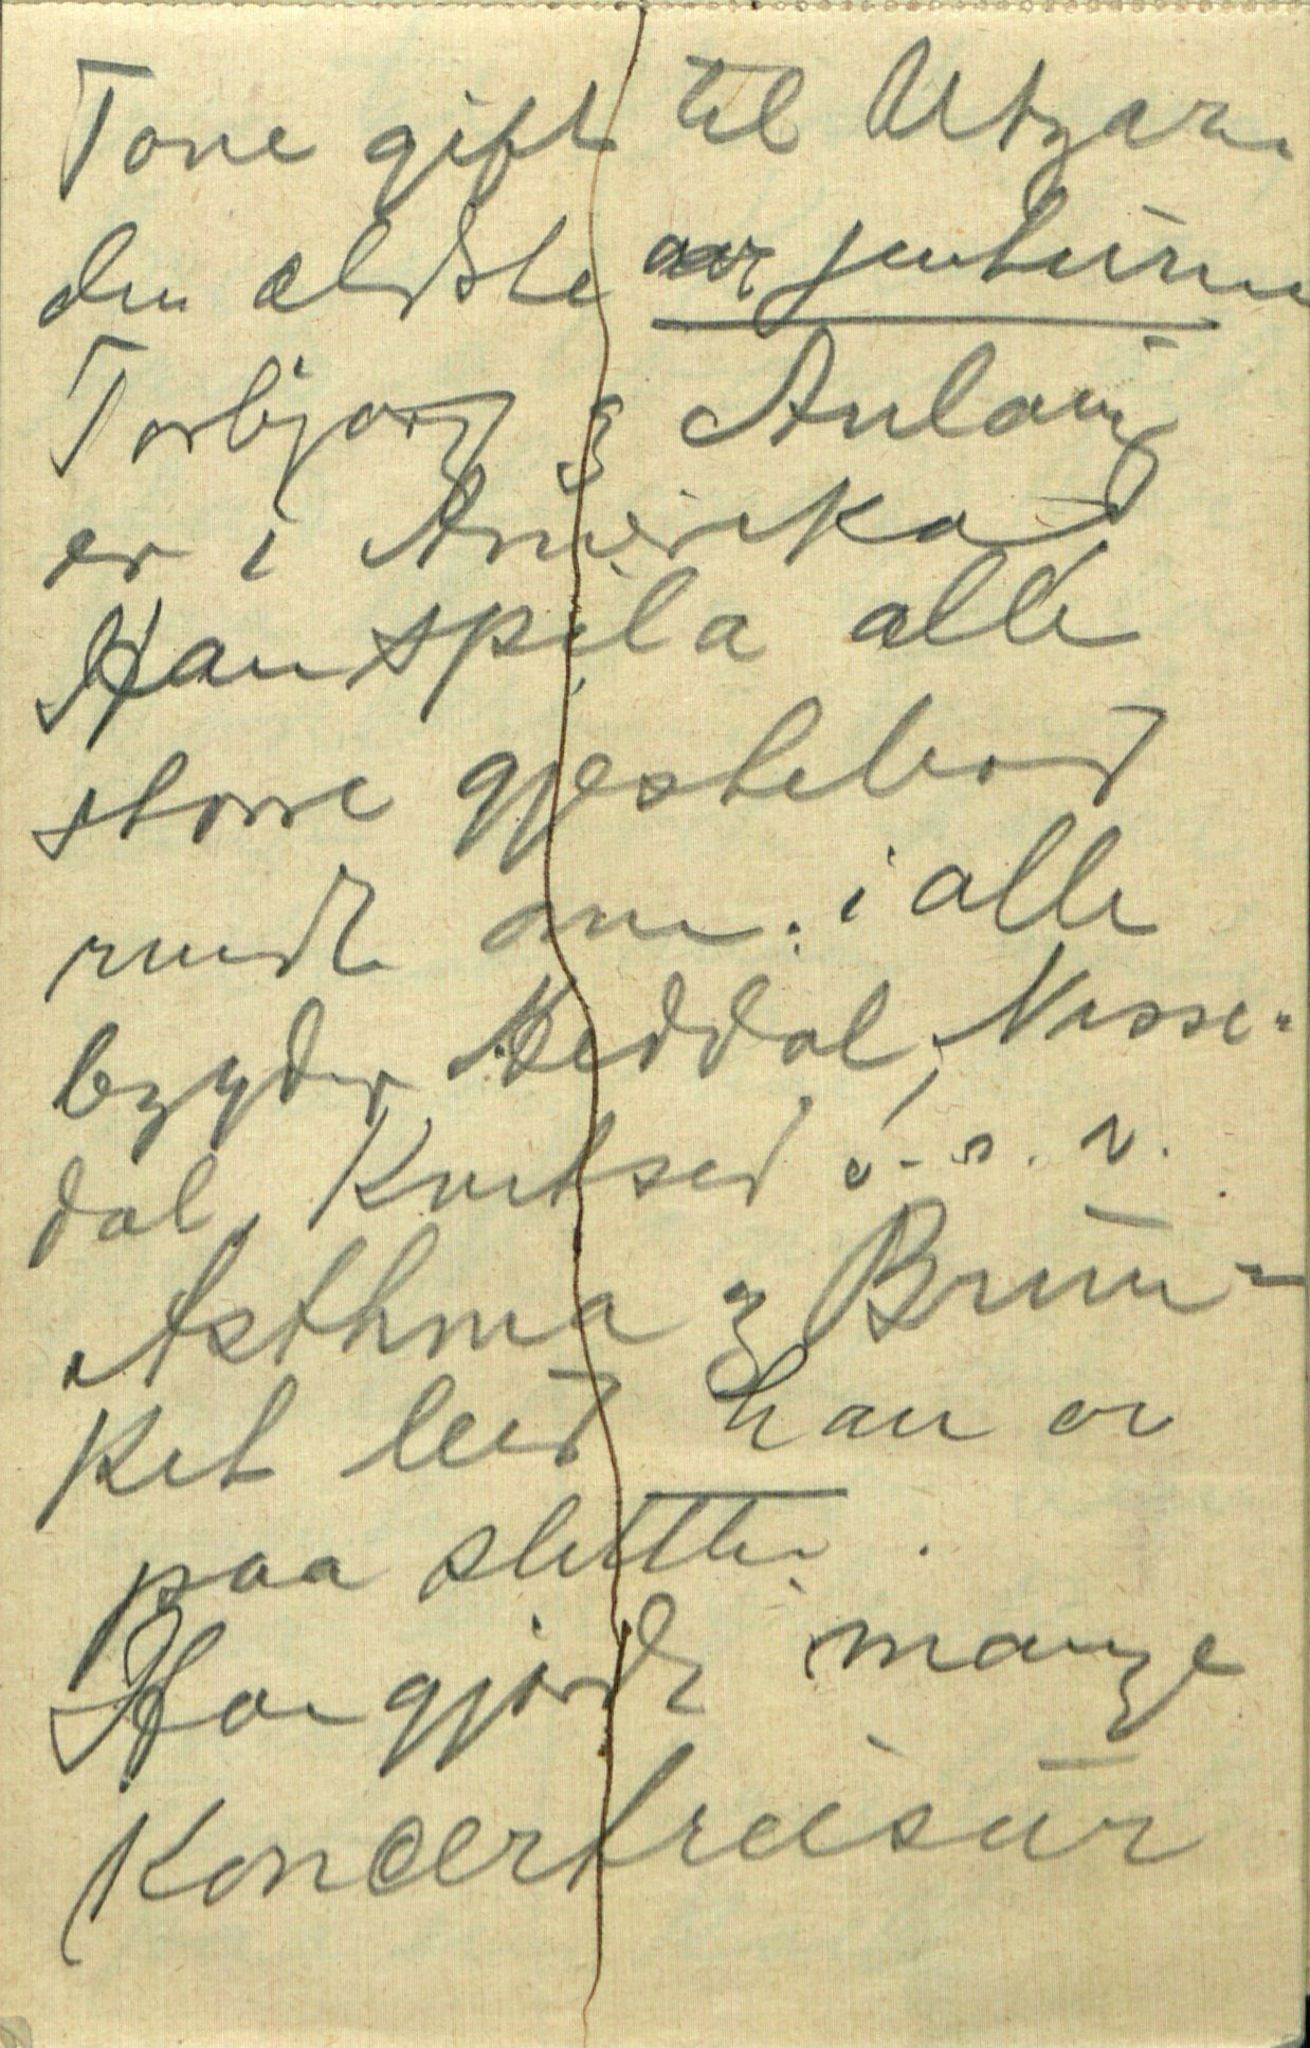 Tone gift til Utgare
den ældste av jenturne
Torbjorg og Aslaug
er i Amerika
Han spela alle
store gjestebod
rundt om. i alle
bygder Heddal, Nisse-
dal, Kvitseid o. s. v.
Asthma og Brun-
ket leid han av
paa sletten.
Han gjorde mange
Koncertreisur